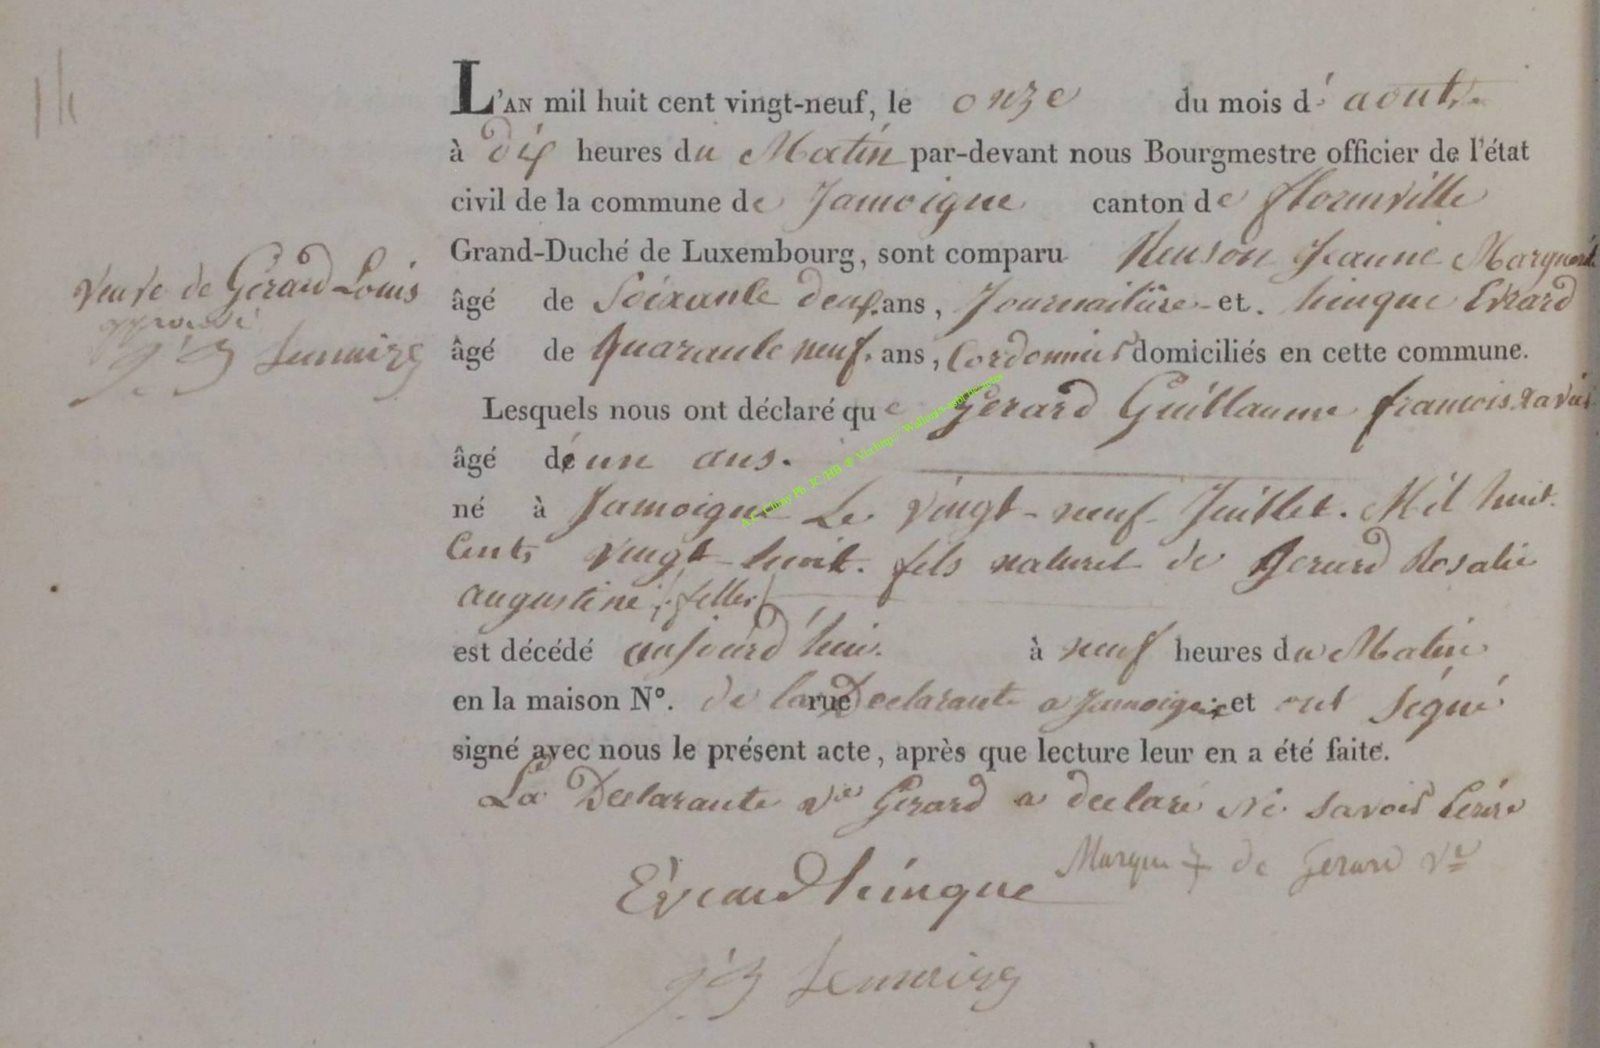 L'AN mil huit cent vingt-neuf, le onze du mois d'aout
à dix heures du Matin par-devant nous Bourgmestre officier de l'état
civil de la commune de Jamoigne canton de florenville
Grand-Duché de Luxembourg, sont comparu Jeanne Marguerite
veuve de Gérard Louis
approuvé
Lemaire
âgé de Soixante deux ans, Journaliere et hinque Evrard
âgé de Quarante neuf ans, Cordonnier domiciliés en cette commune.
Lesquels nous ont déclaré que Gerard Guillaume francois xavier
âgé de un ans.
né à Jamoigne Le vingt-neuf Juillet Mil huit
Cents vingt-huit. fils naturel de Gerard Rosalie
augustine, filler
est décédé aujourd'hui à neuf heures du Matin
en la maison N°. de la rue Declarante a Jamoigne et ont signé
signé avec nous le présent acte, après que lecture leur en a été faite.
La Declarante ve Gerard a declaré Ne savoir Ecrire
Marque + de Gerard Ve
Evrard hinque
Lemaire